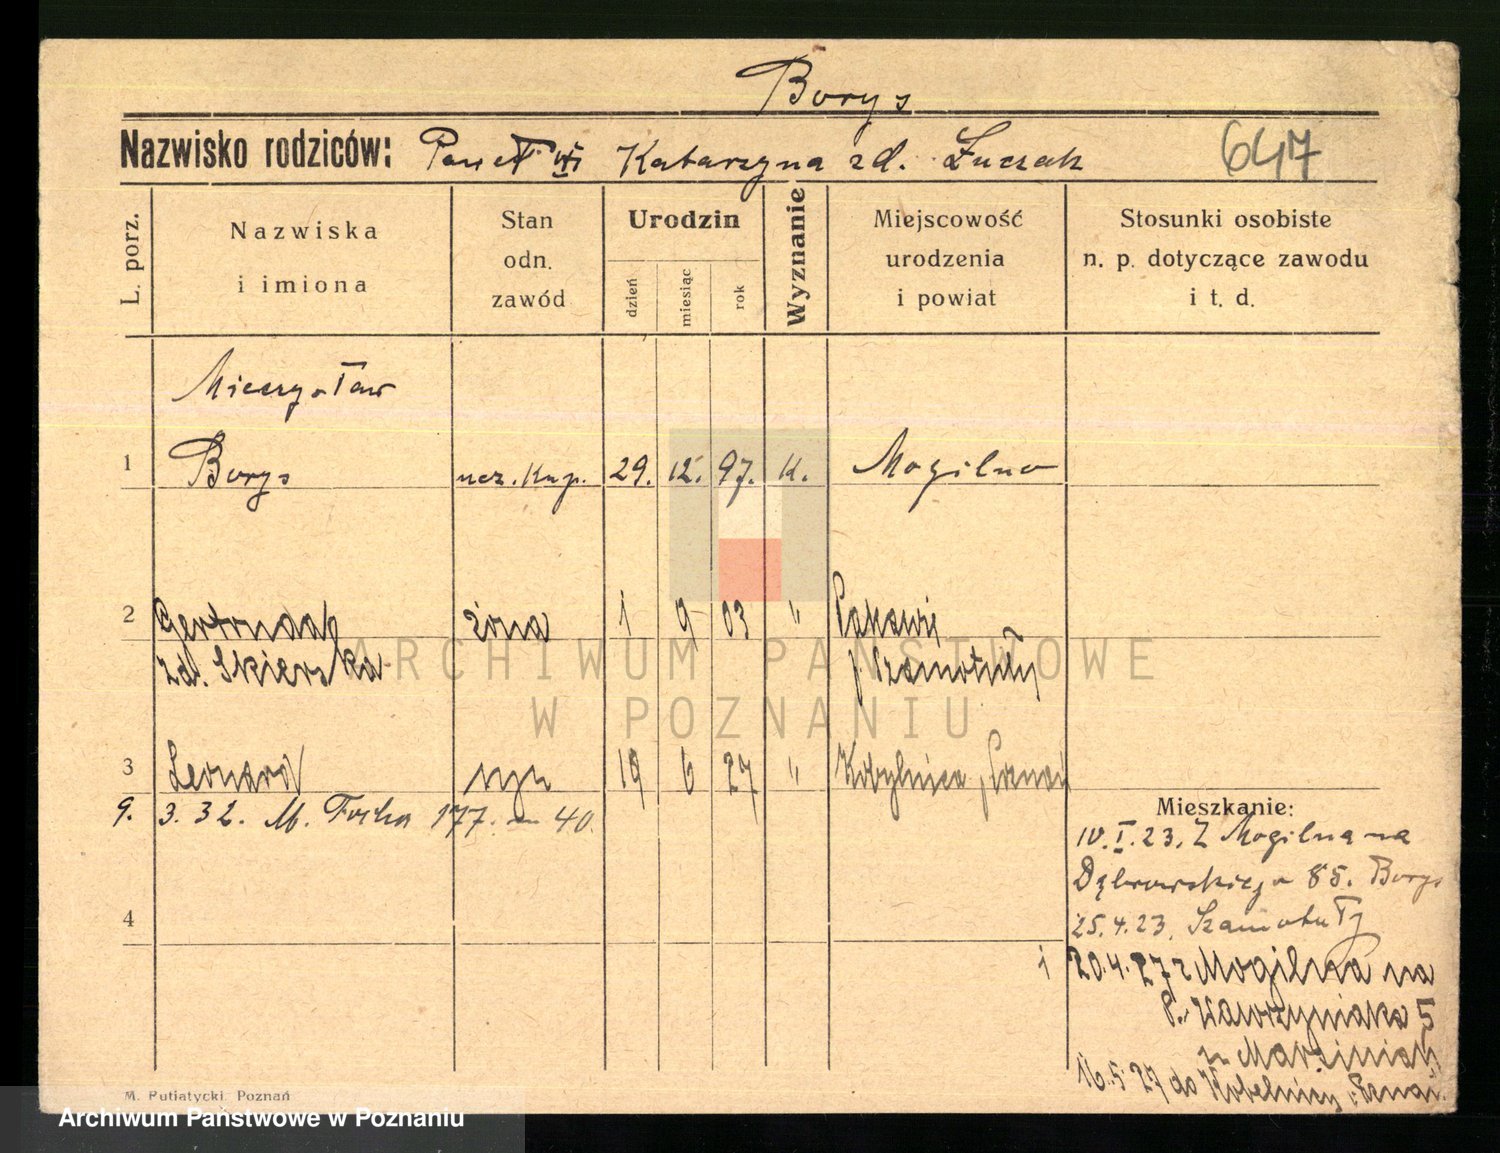 Borys
Nazwisko rodziców: Paweł i Katarzyna zd. Łuczak 647
L. porz.
Nazwiska
i imiona
Stan
odn.
zawód
Urodzin
dzień
miesiąc
rok
Wyznanie
Miejscowość
urodzenia
i powiat
Stosunki osobiste
n. p. dotyczące zawodu
i t. d.
Mieczysław
1 Borys ucz. kup. 29. 12. 97. K. Mogilno
2 Gertruda żona 1 9 03 " Pakawie
zd. Skierska Szamotuły
3 Leonard syn 19 6 27 " Kobylnica, Poznań
9. 3. 32. M. Focha 177. m 40.
Mieszkanie:
10. I. 23. Z Mogilna na
Dąbrowskiego 85. Borys
25.4.23. Szamotuły
4
20.4.27 z Mogilna na
Wawrzyniaka 5
Marciniak
16.5.27 do Kobelnicy
M. Putiatycki, Poznań
ARCHIWUM PAŃSTWOWE
W POZNANIU
Archiwum Państwowe w Poznaniu